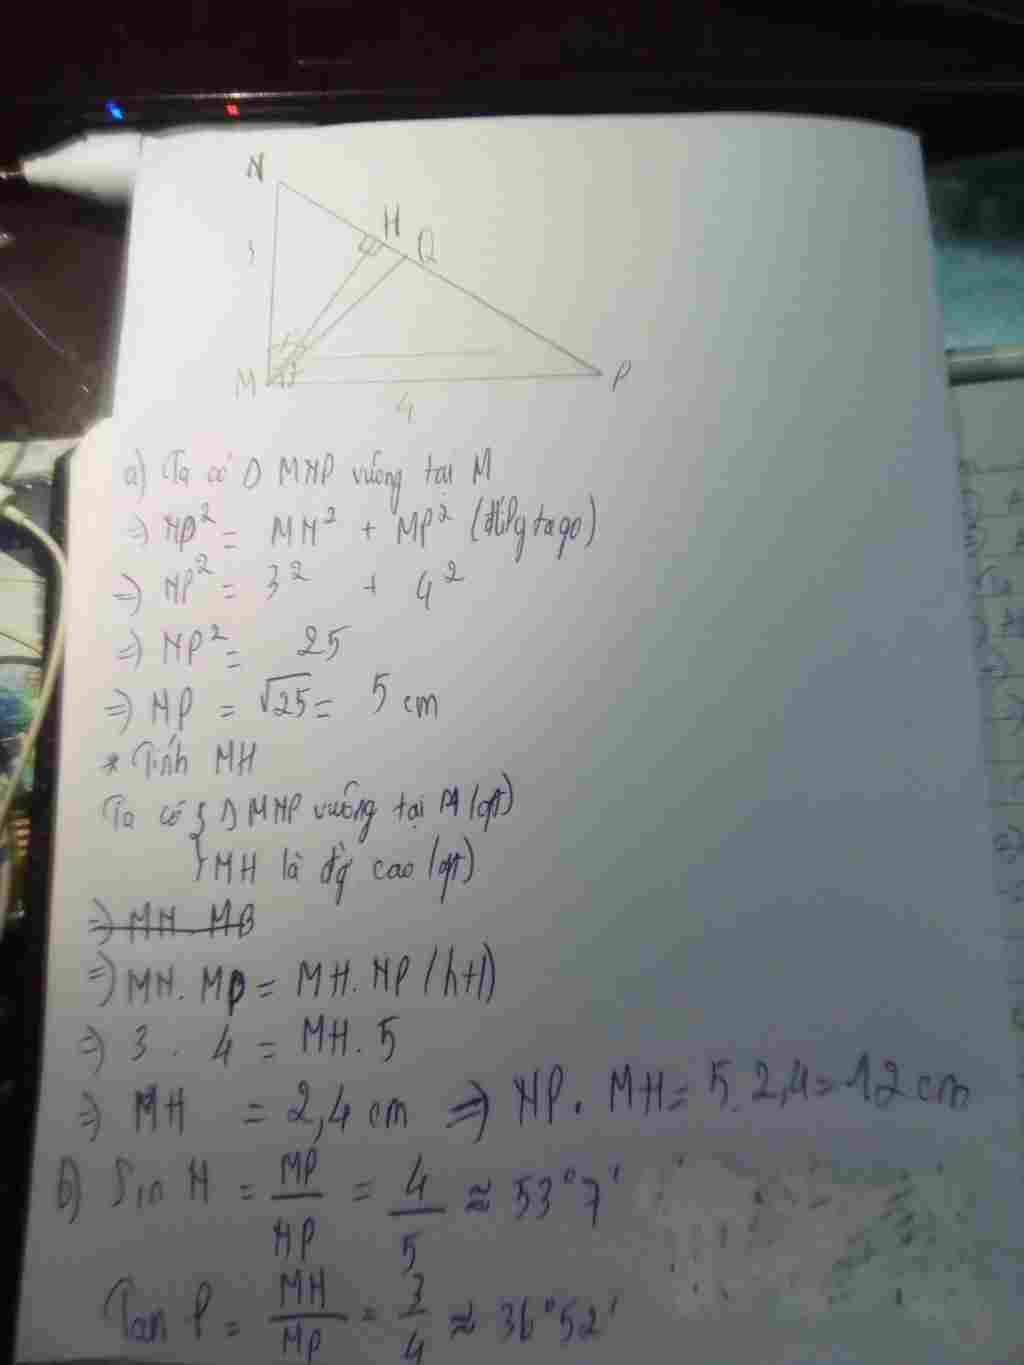 N
H
Q
3
M
P
4
a) Ta có Δ MNP vuông tại M
=> NP² = MN² + MP² (đlPytago)
=> NP² = 3² + 4²
=> NP² = 25
=> NP = √25 = 5 cm
* Tính MH
Ta có { Δ MNP vuông tại M (gt)
{ MH là đg cao (gt)
=> MN. MP = MH. NP (htl)
=> 3 . 4 = MH. 5
=> MH = 2,4 cm => NP. MH = 5. 2,4 = 12 cm
b) Sin N = MP/NP = 4/5 ≈ 53°7'
Tan P = MN/MP = 3/4 ≈ 36°52'